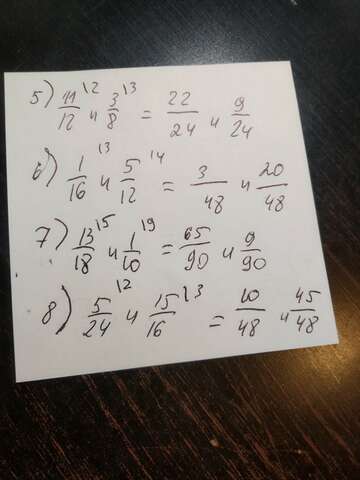 5) 11/12 \2 и 3/8 \3 = 22/24 и 9/24
6) 1/16 \3 и 5/12 \4 = 3/48 и 20/48
7) 13/18 \5 и 1/10 \9 = 65/90 и 9/90
8) 5/24 \2 и 15/16 \3 = 10/48 и 45/48